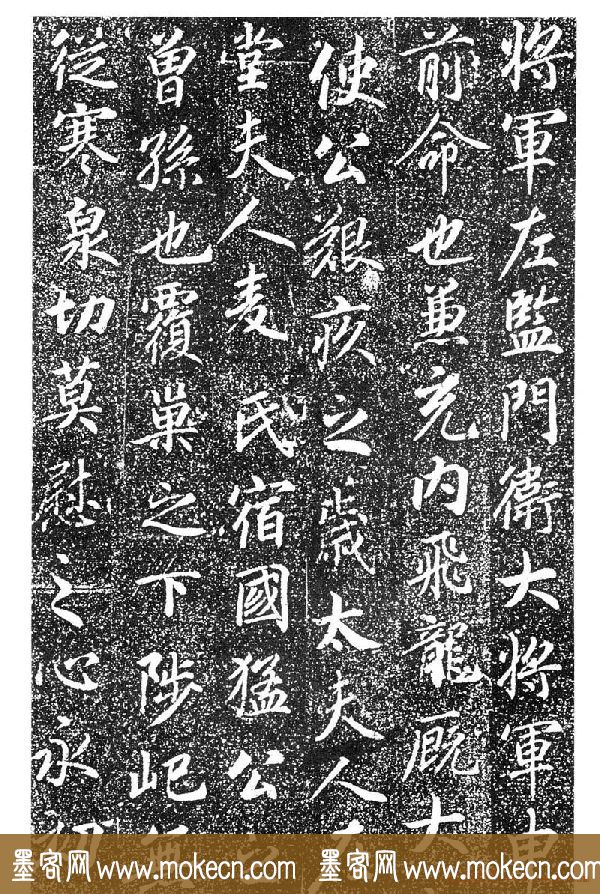 将軍左監門衛大将軍
前命也兼充内飛龍厩大
使公艱疚之歳太夫人
堂夫人麦氏宿國猛公
曽孫也覆巢之下陟屺
従寒泉切莫慰之心永
墨客网 www.mokecn.com 墨客网 www.mokecn.com